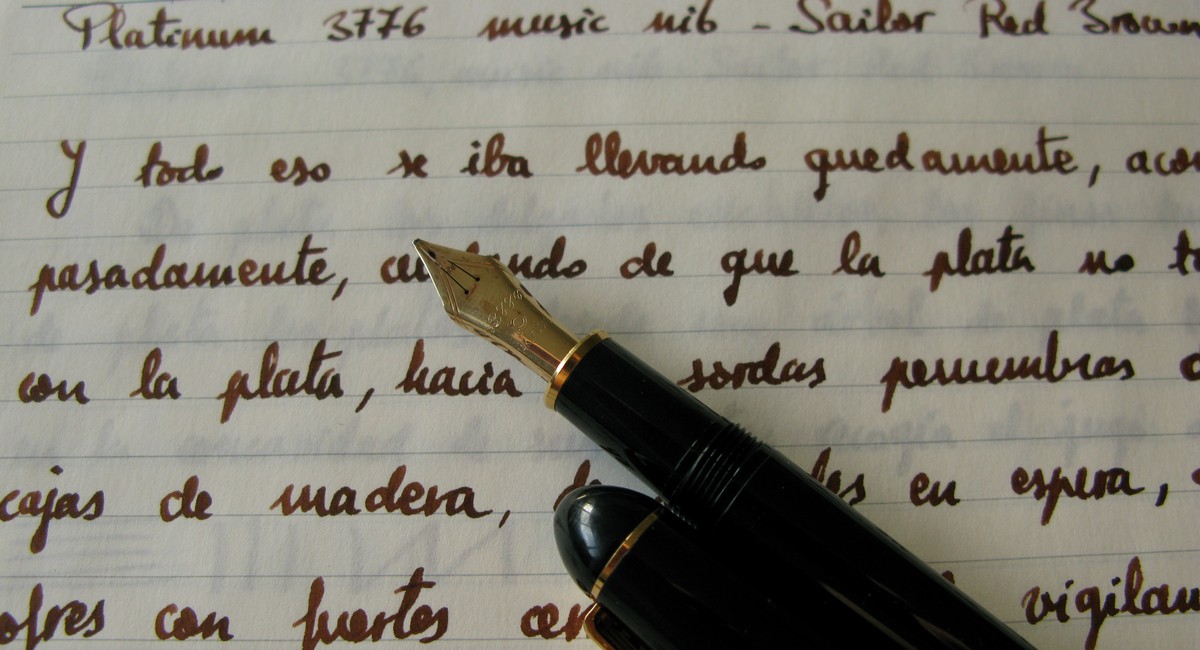 Platinum 3776 music nib - Sailor Red Brown
Y todo eso se iba llevando quedamente,
pasadamente, de que la plata no
con la plata, hacia sordas penumbras
cajas de madera, en espera,
ofres con fuertes vigilan
3776